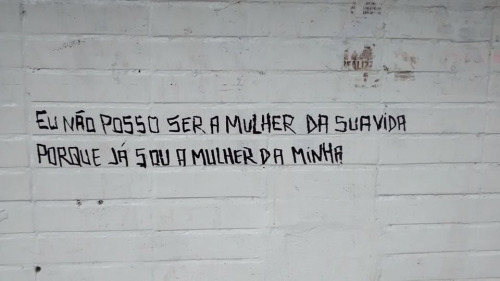 EU NÃO POSSO SER A MULHER DA SUA VIDA
PORQUE JÁ SOU A MULHER DA MINHA